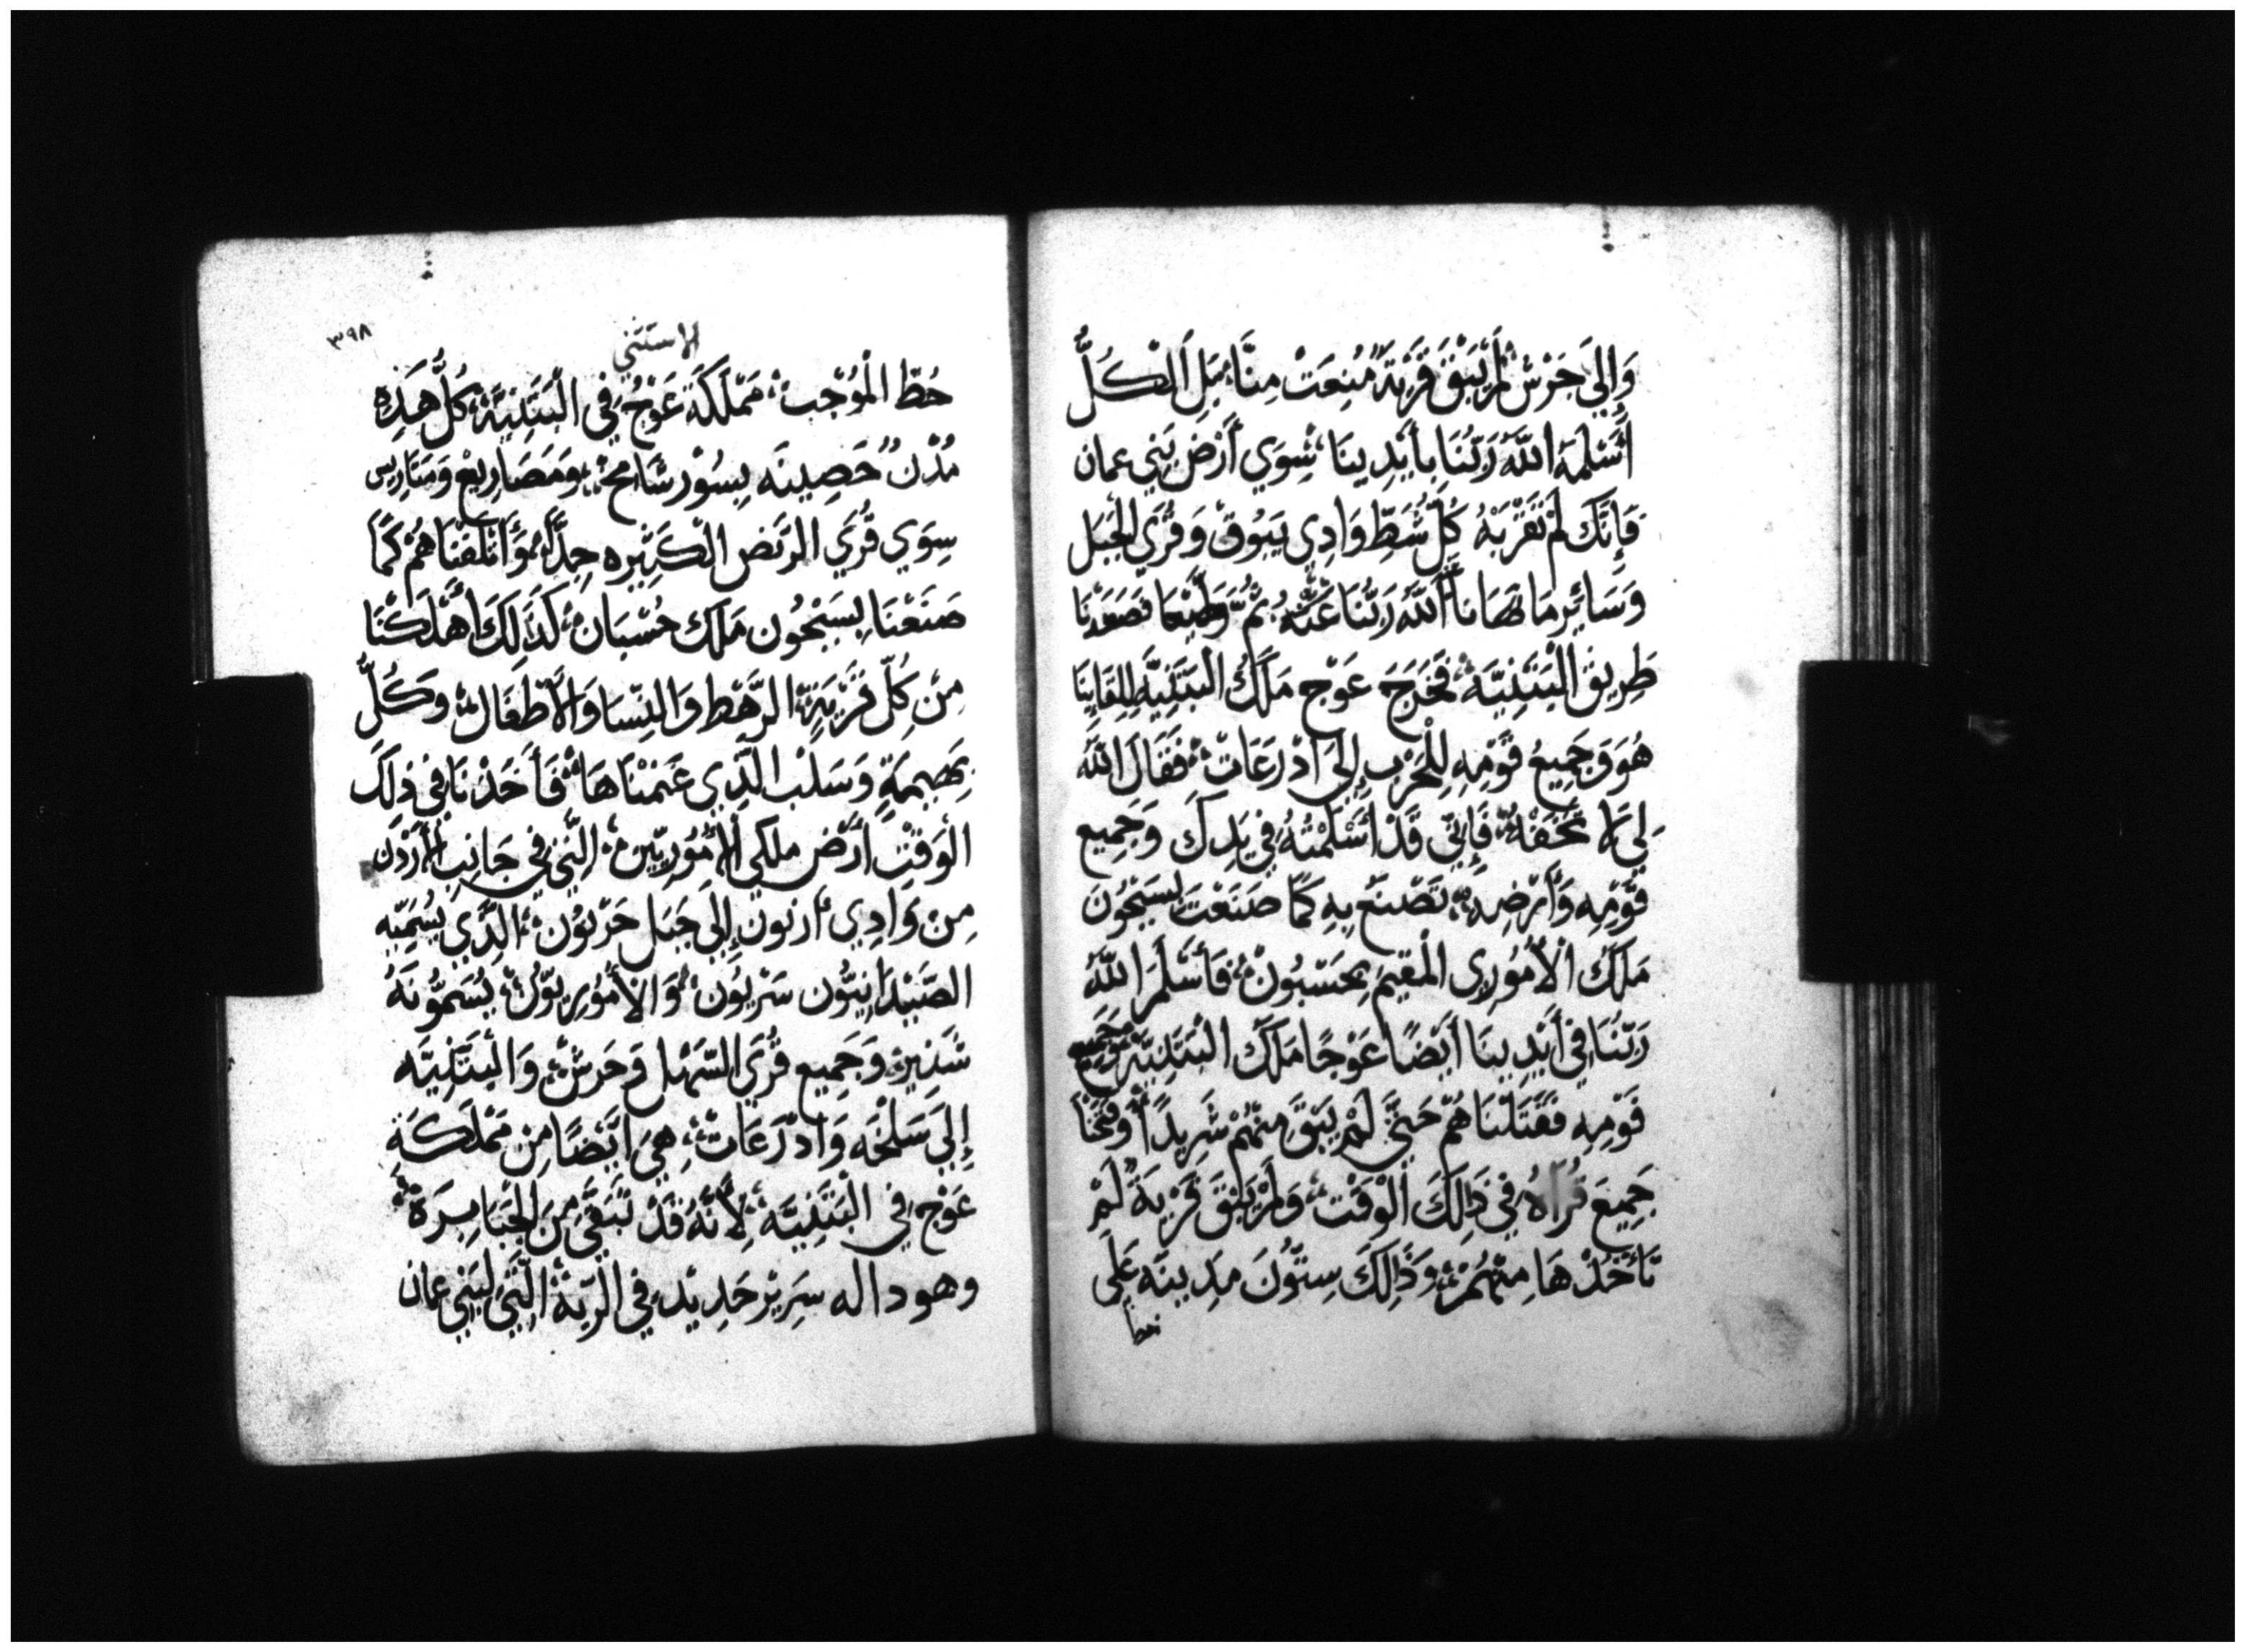 وَإِلَى جَرَش لَمْ يَبْقَ قَرْيَةٌ مُنِعَتْ مِنَّا بَلِ الْكُلُّ
أَسْلَمَهُ اللَّهُ رَبُّنَا بِأَيْدِينَا سِوَي أَرْضِ بَنِي عمان
فَإِنَّكَ لَمْ تَقْرَبْهُ كُلّ شَطِّ وَادِي يَبُوق وَقُرَي الْجَبَل
وَسَائِرِ مَا نَهَانَا اللَّهُ رَبُّنَا عَنْهُ ثُمَّ وَلَّيْنَا فصَعَدْنَا
طَرِيقَ الْبَثَنِيَّة فَخَرَجَ عَوْج مَلَكُ الْبَثَنِيَّةِ لِلِقَايِنَا
هُوَ وَجَمِيعُ قَوْمِهِ لِلْحَرْبِ إِلَى اذْرَعَات فَقَالَ اللَّهُ
لِي لَا تَخَفْهُ فَإِنِّي قَدْ أَسْلَمْتُهُ فِي يَدِكَ وَجَمِيع
قَوْمِهِ وَأَرْضِهِ تَصْنَعُ بِهِ كَمَا صَنَعْتَ بِسَيْحُونَ
مَلَكُ الْأَمُورِي الْمُقِيمَ بِحَسْبُونْ فَأَسْلَمَ اللَّهُ
رَبُّنَا فِي أَيْدِينَا أَيْضًا عَوْجًا مَلَكَ الْبَثَنِيَّة وَجَمِيع
قَوْمِهِ فَقَتَلْنَاهُمْ حَتَّى لَمْ يَبْقَ مِنْهُمْ شَرِيدًا وَفَتَحْنَا
جَمِيعَ قُرَاهُ فِي ذَلِكَ الْوَقْت وَلَمْ يَبْقَ قَرْيَةٌ لَمْ
نَأْخُذْهَا مِنْهُمْ وَذَلِكَ سِتُّونَ مَدِينَه عَلَى
الاستثني
٣٩٨
حُطّ الْمُوْجِب مَمْلَكَة عَوْج فِي الْبَثَنِيَّةِ كُلُّ هَذِهِ
مُدْنٌ حَصِينَه بِسُوْر شَامِخ وَمَصَارِيعْ وَمَتَارِيس
سِوَي قُرَي الرَّبَضِ الْكَثِيرِه جِدًّا وَأَتْلَفْنَاهُمْ كَمَا
صَنَعْنَا بِسَيْحُون مَلَك حُسْبَان كَذَلِكَ أَهْلَكْنَا
مِنْ كُلِّ قَرْيَةٍ الرَّهْط وَالنِّسَا وَالْأَطْفَال وَكُلُّ
بَهِيمَةٍ وَسَلْب الَّذِي غَنَمْنَاهَا فَأَخَذْنَا فِي ذَلِكَ
الْوَقْتِ أَرْض ملكي الْأَمُورِيِّين الَّتِي فِي جَانِبِ الْأَرْدُن
مِنْ وَادِي ارنون إِلَى جَبَل حَرْيُوْن الَّذِي يُسَمِّيهِ
الصَّيْدَانِيُّون سَرْيُون وَالْأَمُورِيوُّن يُسَمُّونَهُ
شَنِير وَجَمِيع قُرَي السَّهْل وَجَرَش وَالْبَثَنِيَّه
إِلَى سَلْخَه وَاذْرَعَات هِيَ ايْضًا مِن مَمْلَكَة
عَوْج فِي الْبَثَنِيَّه لِأَنَّهُ قَدْ تَبَقَّى مِنَ الْجَبَابِرَة
وهوذا له سَرِيْر حَدِيْد فِي الرَّبَّة الَّتِي لِبَنِي عمان